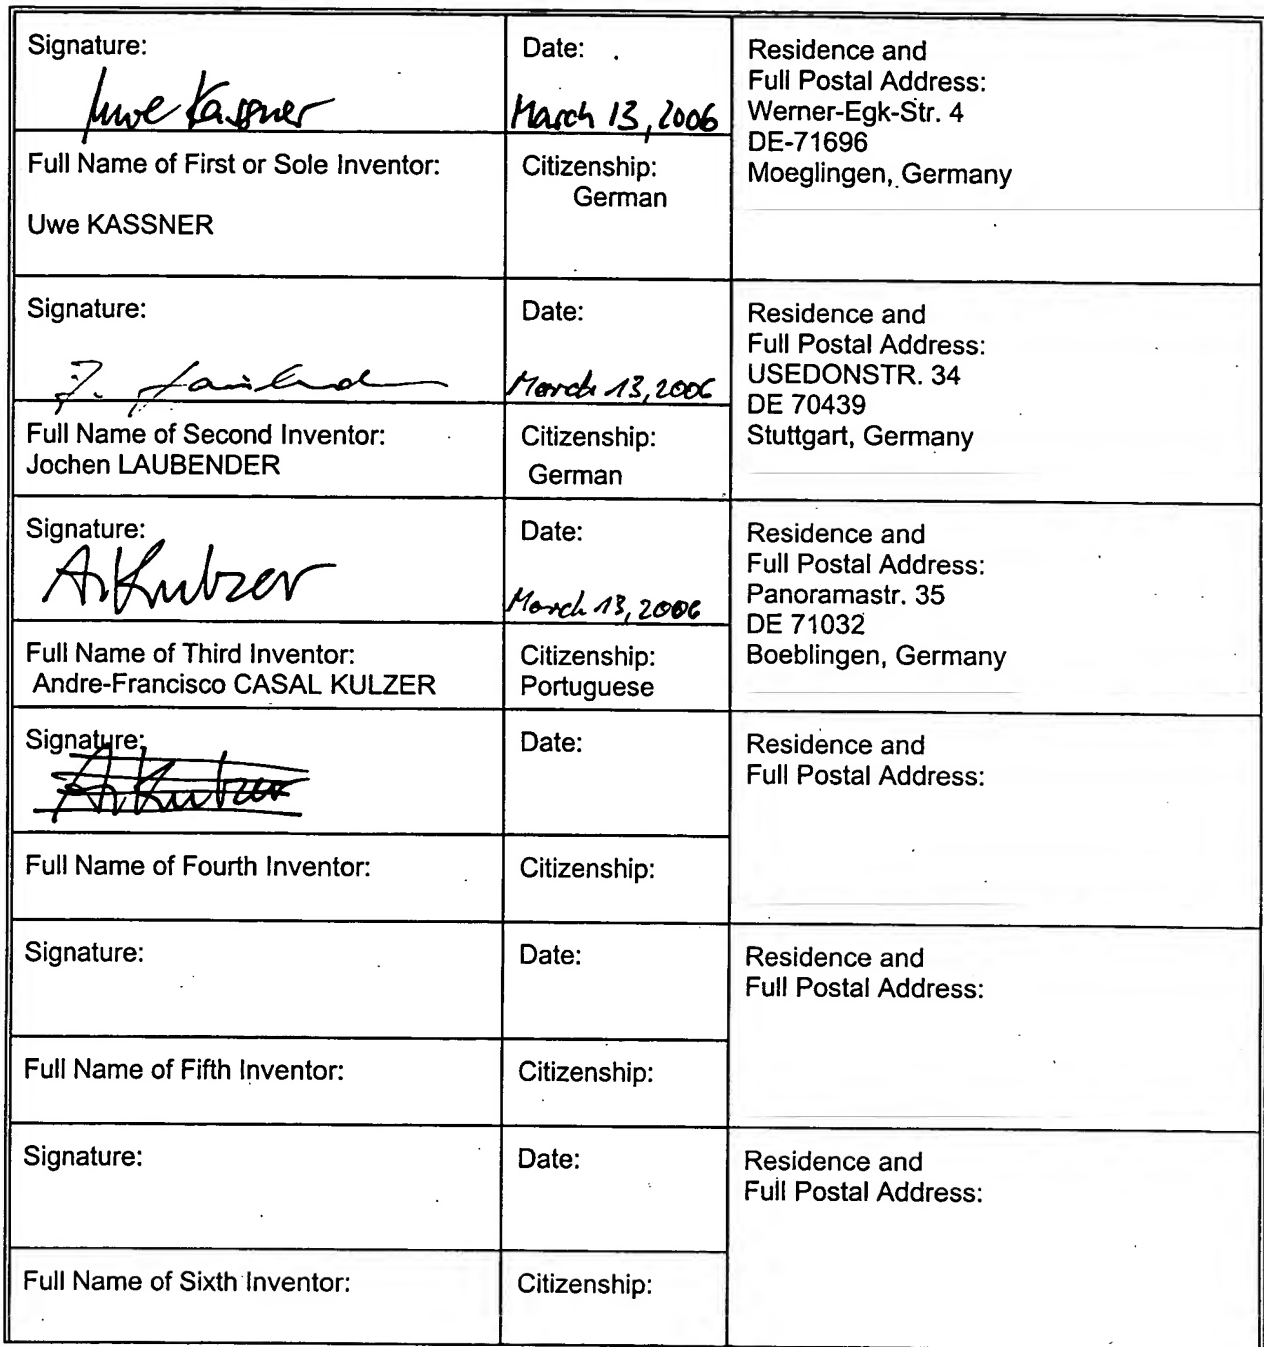 Signature:
Uwe Kassner
Date:
March 13, 2006
Residence and
Full Postal Address:
Werner-Egk-Str. 4
DE-71696
Moeglingen, Germany
Full Name of First or Sole Inventor:
Uwe KASSNER
Citizenship:
German
Signature:
J. Laubender
Date:
March 13, 2006
Residence and
Full Postal Address:
USEDONSTR. 34
DE 70439
Stuttgart, Germany
Full Name of Second Inventor:
Jochen LAUBENDER
Citizenship:
German
Signature:
A. Kulzer
Date:
March 13, 2006
Residence and
Full Postal Address:
Panoramastr. 35
DE 71032
Boeblingen, Germany
Full Name of Third Inventor:
Andre-Francisco CASAL KULZER
Citizenship:
Portuguese
Signature:
A. Kulzer
Date:
Residence and
Full Postal Address:
Full Name of Fourth Inventor:
Citizenship:
Signature:
Date:
Residence and
Full Postal Address:
Full Name of Fifth Inventor:
Citizenship:
Signature:
Date:
Residence and
Full Postal Address:
Full Name of Sixth Inventor:
Citizenship: